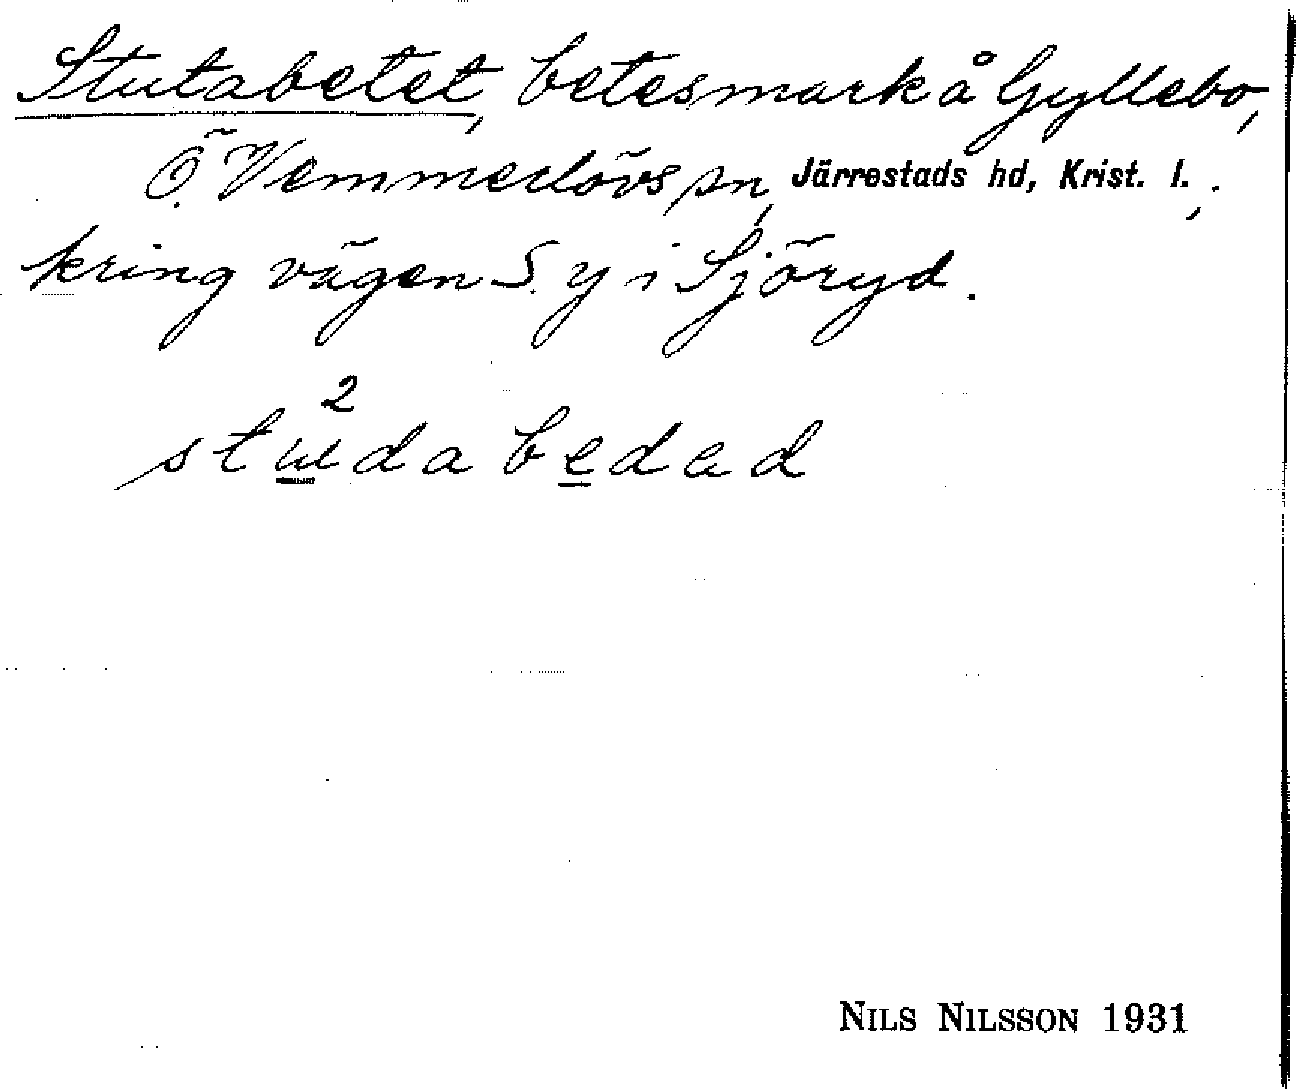 Stutabetet, betesmark å Gyllebo,
Ö. Vemmerlövs sn, Järrestads hd, Krist. l.,;
kring vägen S. y i Sjöryd.
2
studabedad
NILS NILSSON 1931